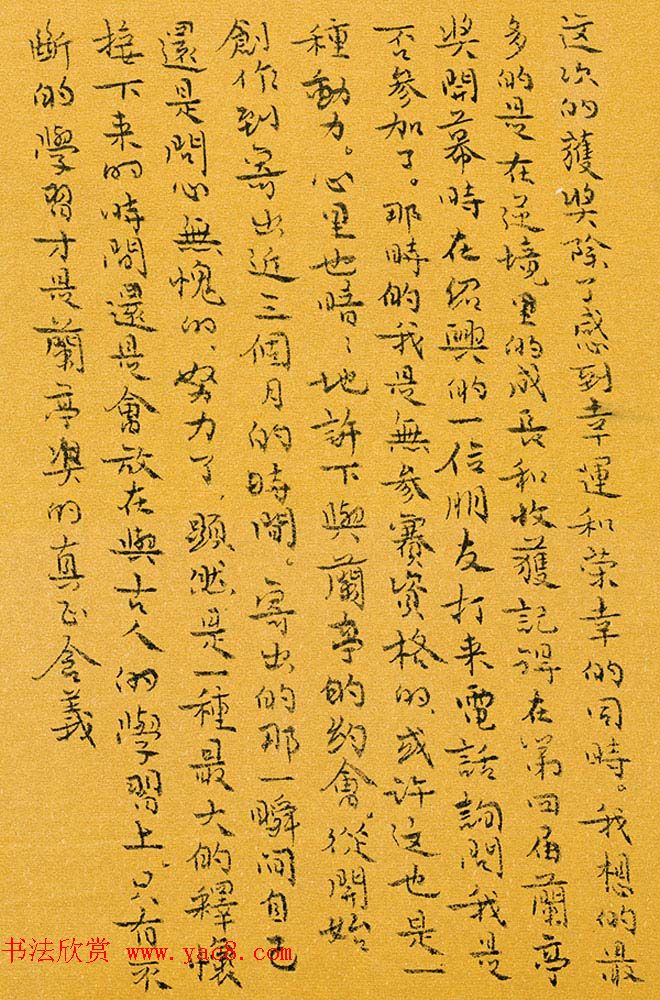 这次的獲奖除了感到幸運和荣幸的同時。我想的最
多的是在逆境里的成長和收獲記得在第四届蘭亭
奖開幕時在绍興的一位朋友打来電話詢問我是
否参加了。那時的我是無参賽資格的,或许这也是一
種動力。心里也暗々地許下與蘭亭的约會。從開始
創作到寄出近三個月的時間。寄出的那一瞬间自己
還是問心無愧的、努力了,顕然是一種最大的釋懷
接下来的時間還是會放在與古人的學習上。只有不
断的學習才是蘭亭奖的真正含義
书法欣赏 www.yac8.com